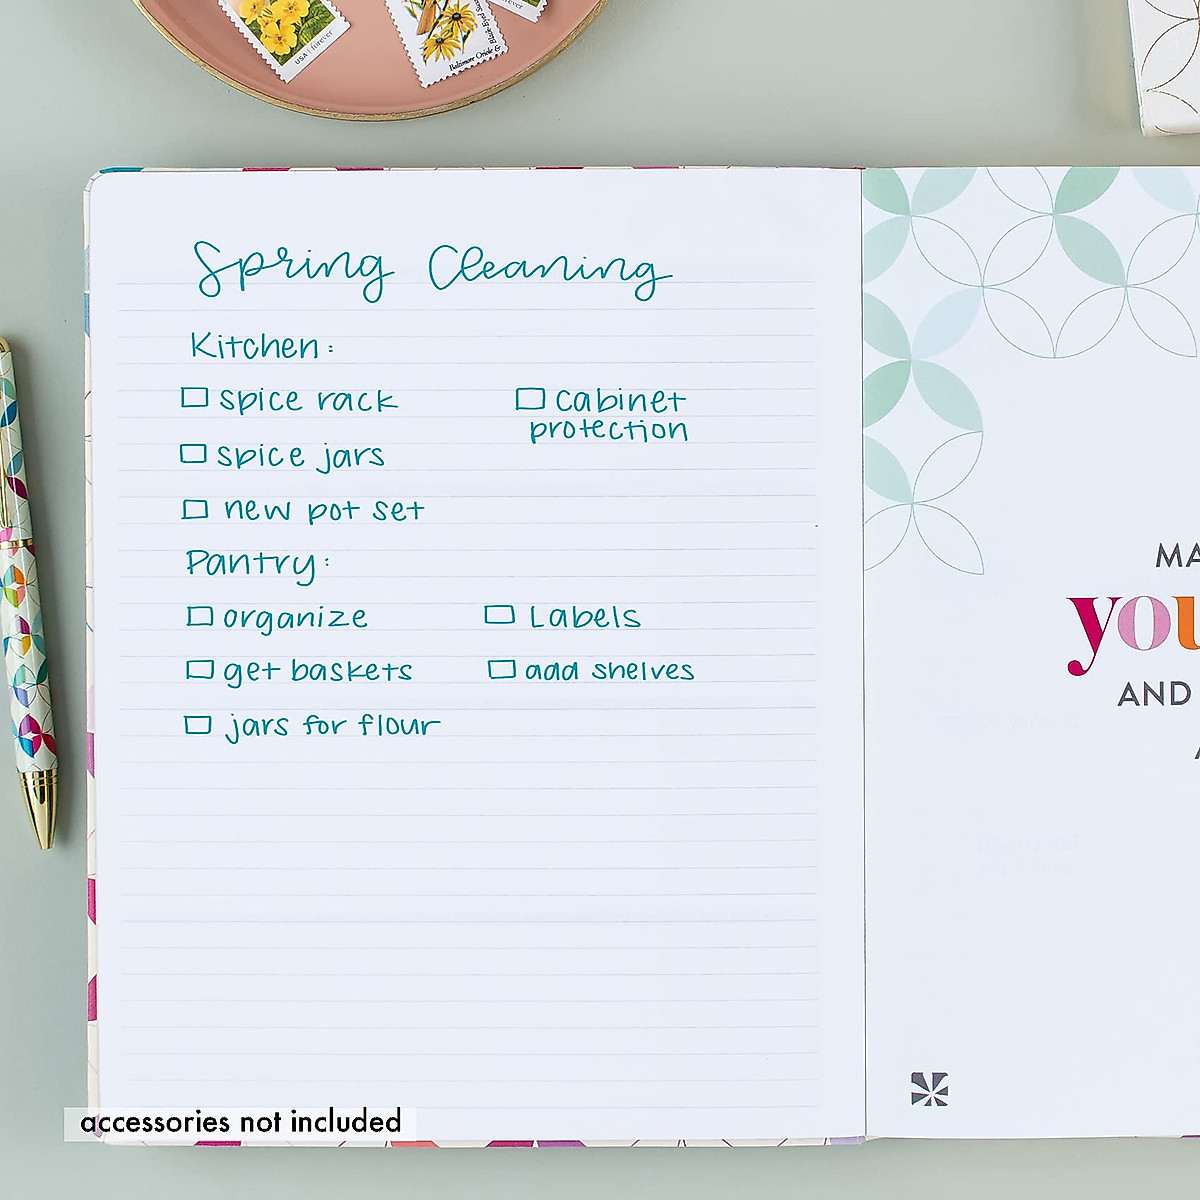 USA | forever
Baltimore Oriole &
Black-Eyed Susan
forever
Spring Cleaning
Kitchen:
spice rack
cabinet
protection
spice jars
new pot set
Pantry:
organize
Labels
get baskets
add shelves
jars for flour
MA
you
AND
accessories not included